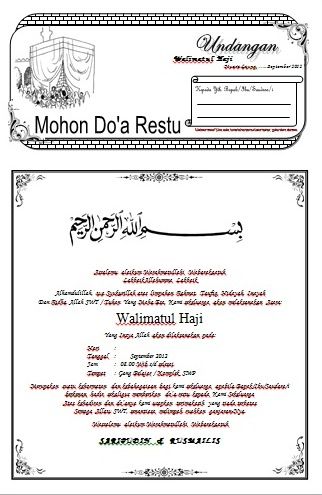 Undangan
Walimatul Haji
September 2012
Kepada Yth. Bapak/Ibu/Saudara/i
Mohon Do'a Restu
بسم الله الرحمن الرحيم
Assalamu alaikum Warahmatullahi Wabarakaatuh
Labbaik Allahumma Labbaik
Alhamdulillah
Dan Ridha Allah SWT / Tuhan Yang Maha Esa, Kami keluarga akan melaksanakan Acara:
Walimatul Haji
Yang Insya Allah akan dilaksanakan pada:
Hari :
Tanggal : September 2012
Jam : 08.00 Wib s/d selesai
Tempat : Gang Belajar / Komplek SMP
Merupakan suatu kehormatan dan kebahagiaan bagi kami sekeluarga, apabila Bapak/Ibu/Saudara/i
berkenan hadir sekaligus memberikan do'a restu kepada Kami Sekeluarga
Atas kehadiran dan do'anya kami ucapkan terimakasih
Semoga Allah SWT
Wassalamu alaikum Warahmatullahi Wabarakaatuh
SARIPUDIN & RUSMAILIS